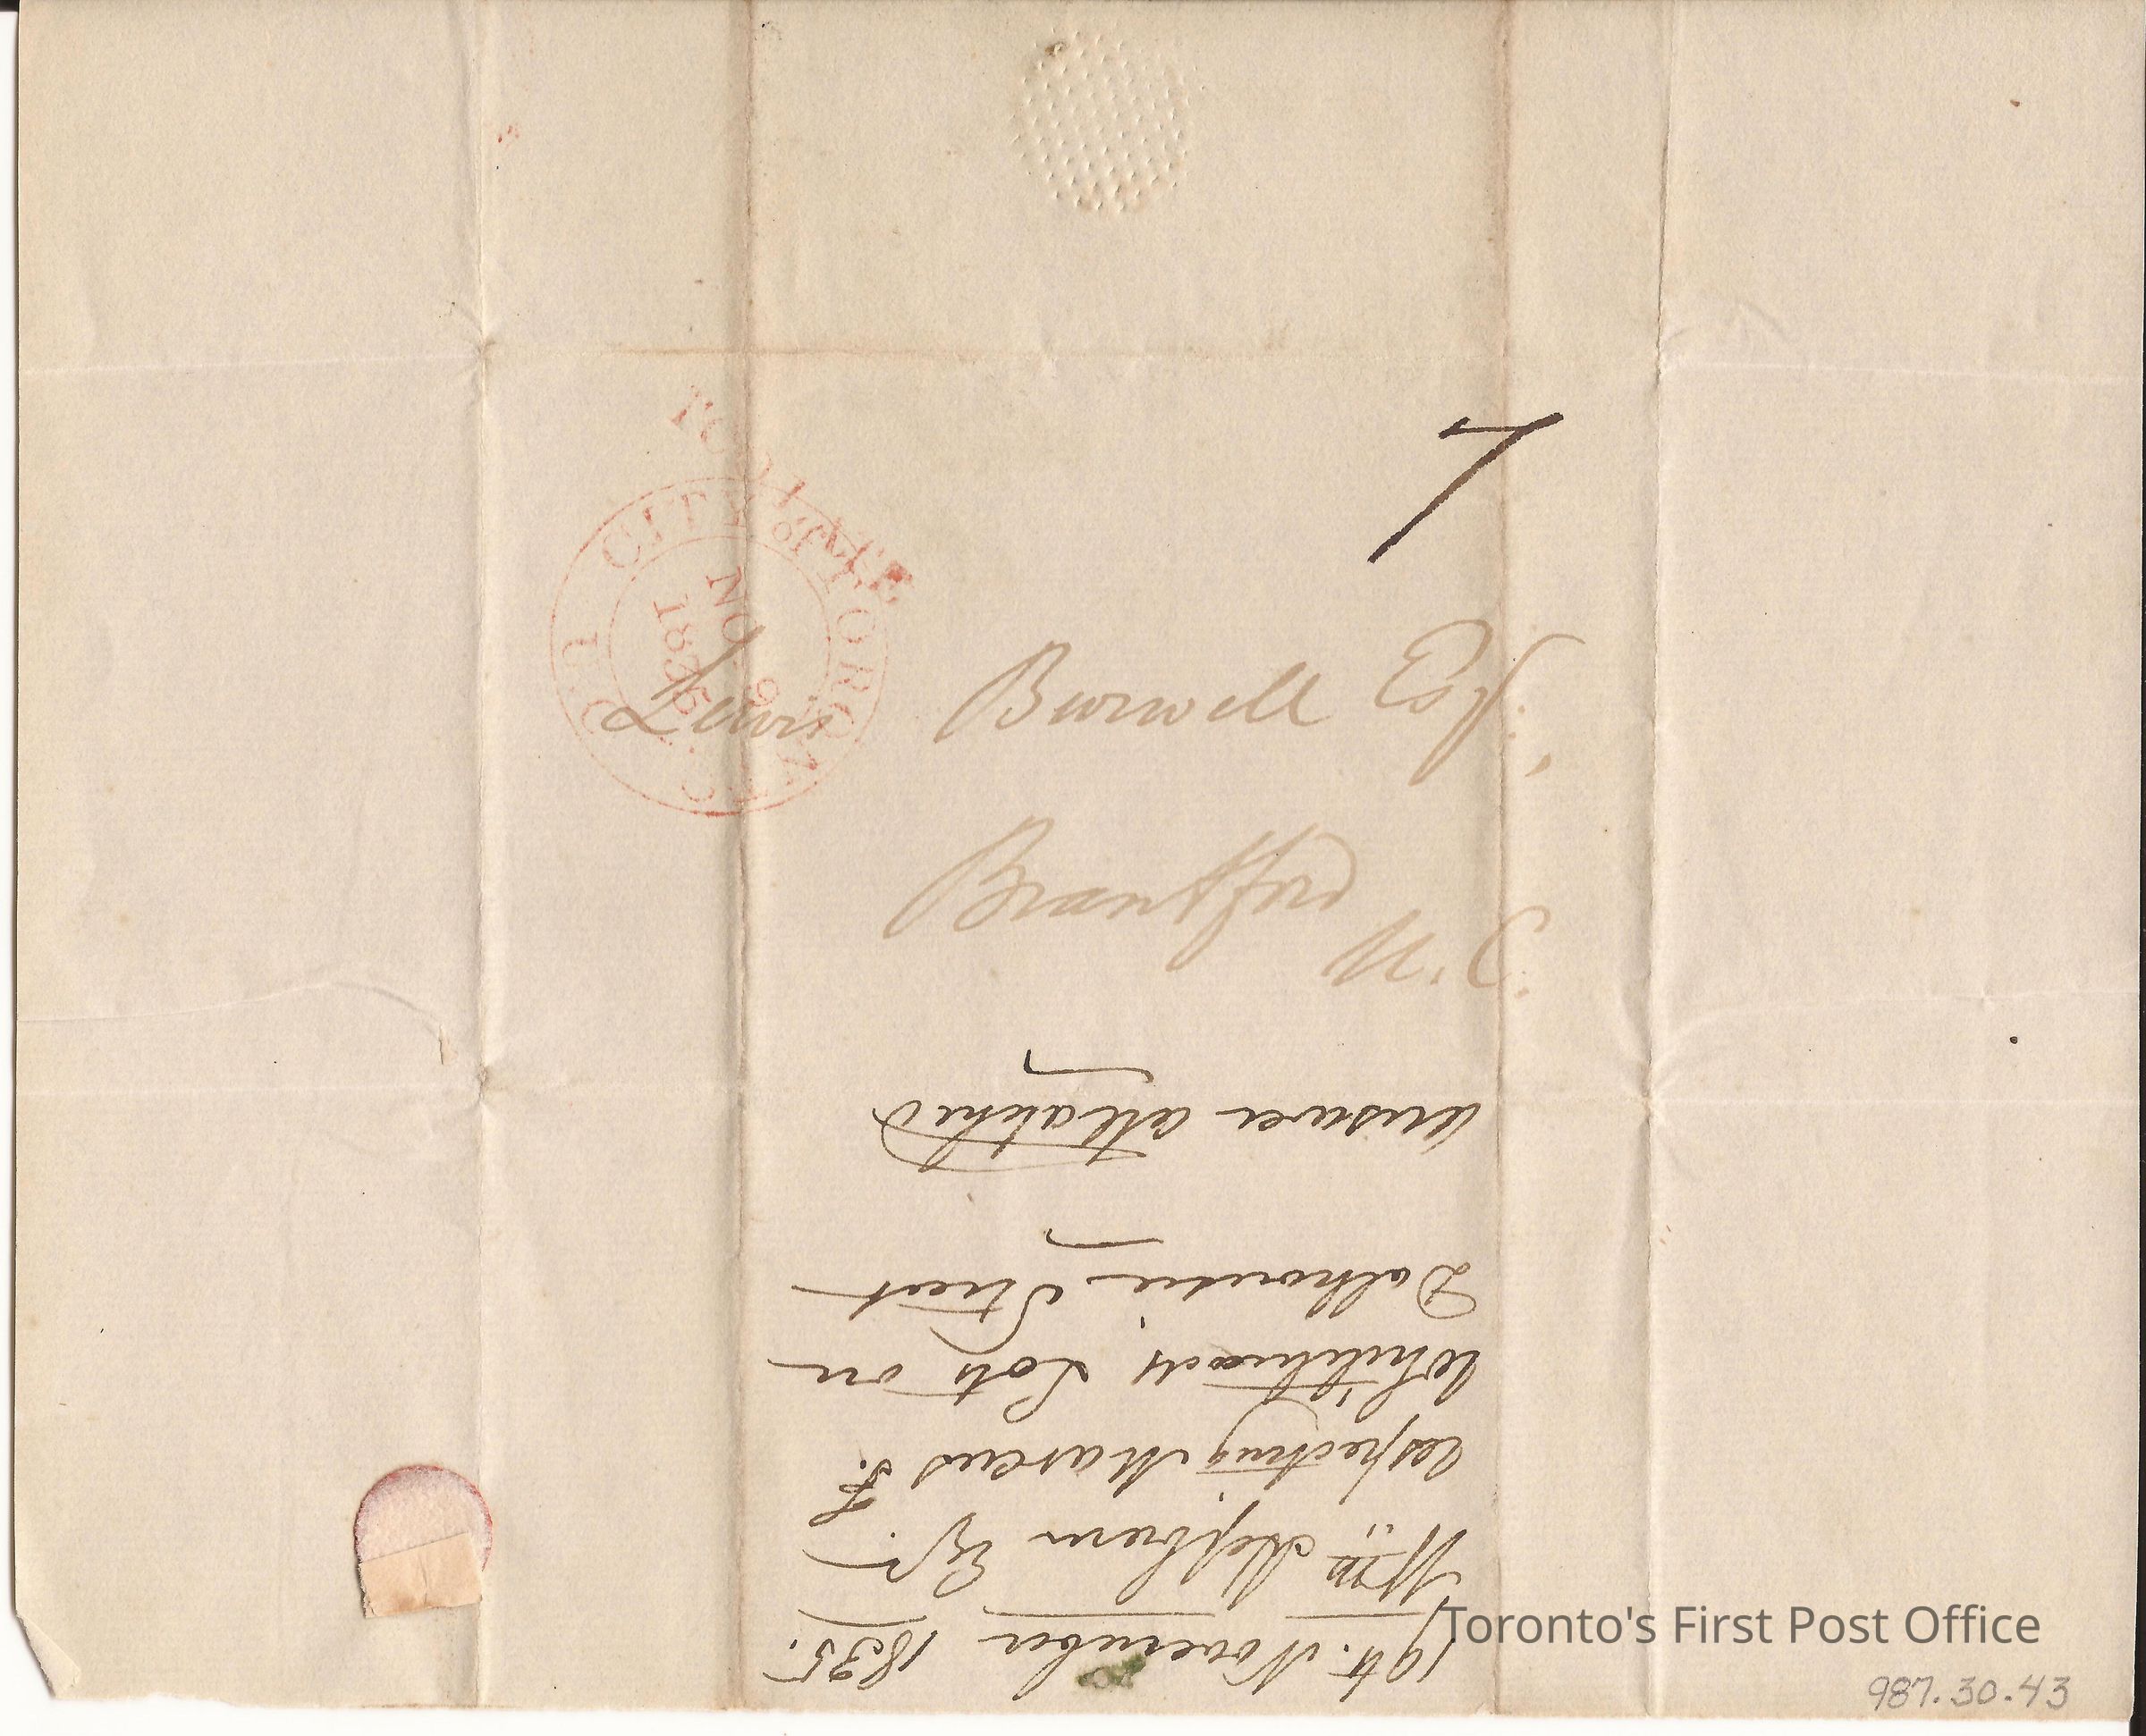 7
CITY OF TORONTO
U.C.
NO 9
1835
Lewis Burwell Esqr.,
Brantford
U.C.
19th. November 1835.
Wm. Hepburn Esqr.
respecting Marcus F.
Whitehead's Lots on
Dalhousie Street
Answer attached
Toronto's First Post Office
987.30.43